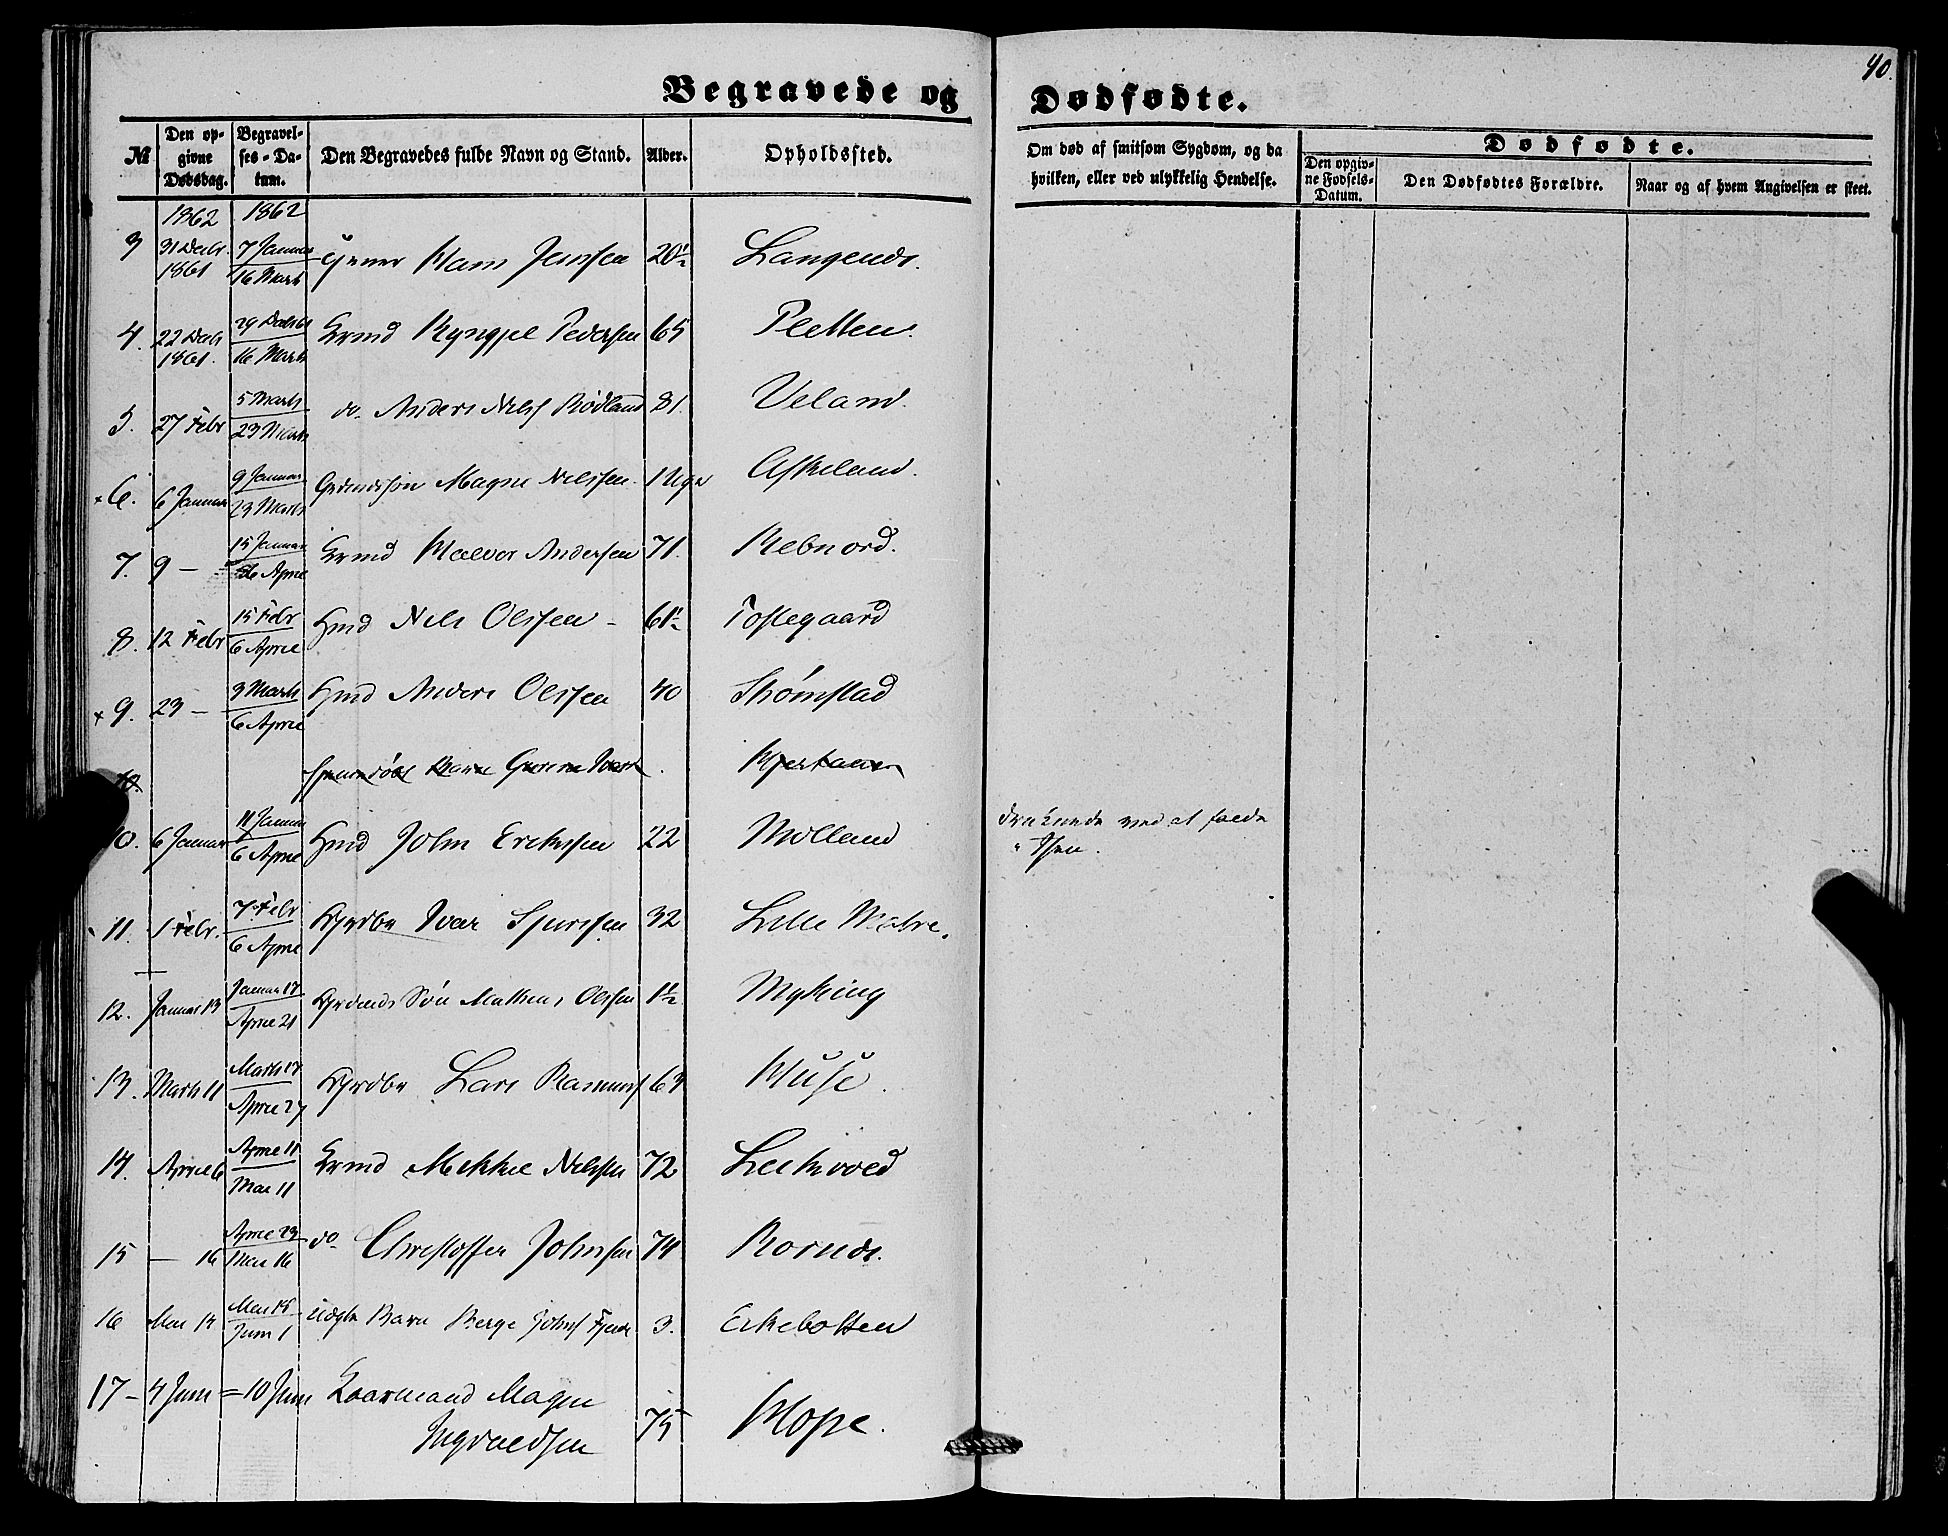 40.
Begravede og Dødfødte.
№ Den opgivne Dødsdag. Begravelses-Datum. Den Begravedes fulde Navn og Stand. Alder. Opholdssted. Om død af smitsom Sygdom, og da hvilken, eller ved ulykkelig Hendelse. Dødfødte. Den opgivne Fødsels-Datum. Den Dødfødtes Forældre. Naar og af hvem Angivelsen er skeet.
1862 1862
3 31 Decbr. 1861 7 Januar 16 Marts Hans Jensen 20½ Langenæs.
4. 22 Decbr 1861. 29 Decbr 61 16 Marts Krmd Pedersen 65 Pletten.
5. 27 Febr 5 Marts 23 Marts do. Anders Nels Rødland 81. Veland.
× 6. 6 Januar 9 Januar 23 Marts Magne Nelssen. 1 Uge Askeland.
7. 9 – 15 Januar 6 April Krmd Halvor Andersen 71. Rebnord.
8. 12 Febr 15 Febr 6 April Hmd Nels Olssen – 61½ Toftegaard
× 9. 23 – 3 Marts 6 April Hmd Anders Olssen 40 Strømstad
10.
10. 6 Januar 11 Januar 6 April Hmd John Erikssen 22 Molland druknede ved at falde i Isen.
11. 1 Febr. 7 Febr 6 April Grdbr Iver Sjurssen 32 Lille Matre.
12. Januar 13 Januar 17 April 21 Søn Mathias Olssen 1½ Myking
13. Marts 11 Marts 17 April 27 Grdbr Lars Rasmuss 63 Huse.
14. April 6 April 11 Mai 11 Krmd Mikkel Nelssen 72 Leikvold
15 – 16 April 23 Mai 16 do Christoffer Johnsen 74 Hornæs.
16 Mai 12 Mai 18 Juni 1 Barn Johns 3. Eikebotten
17 – 4 Juni = 10 Juni Kaarmand Magne
Ingvaldsen 75 Hope.